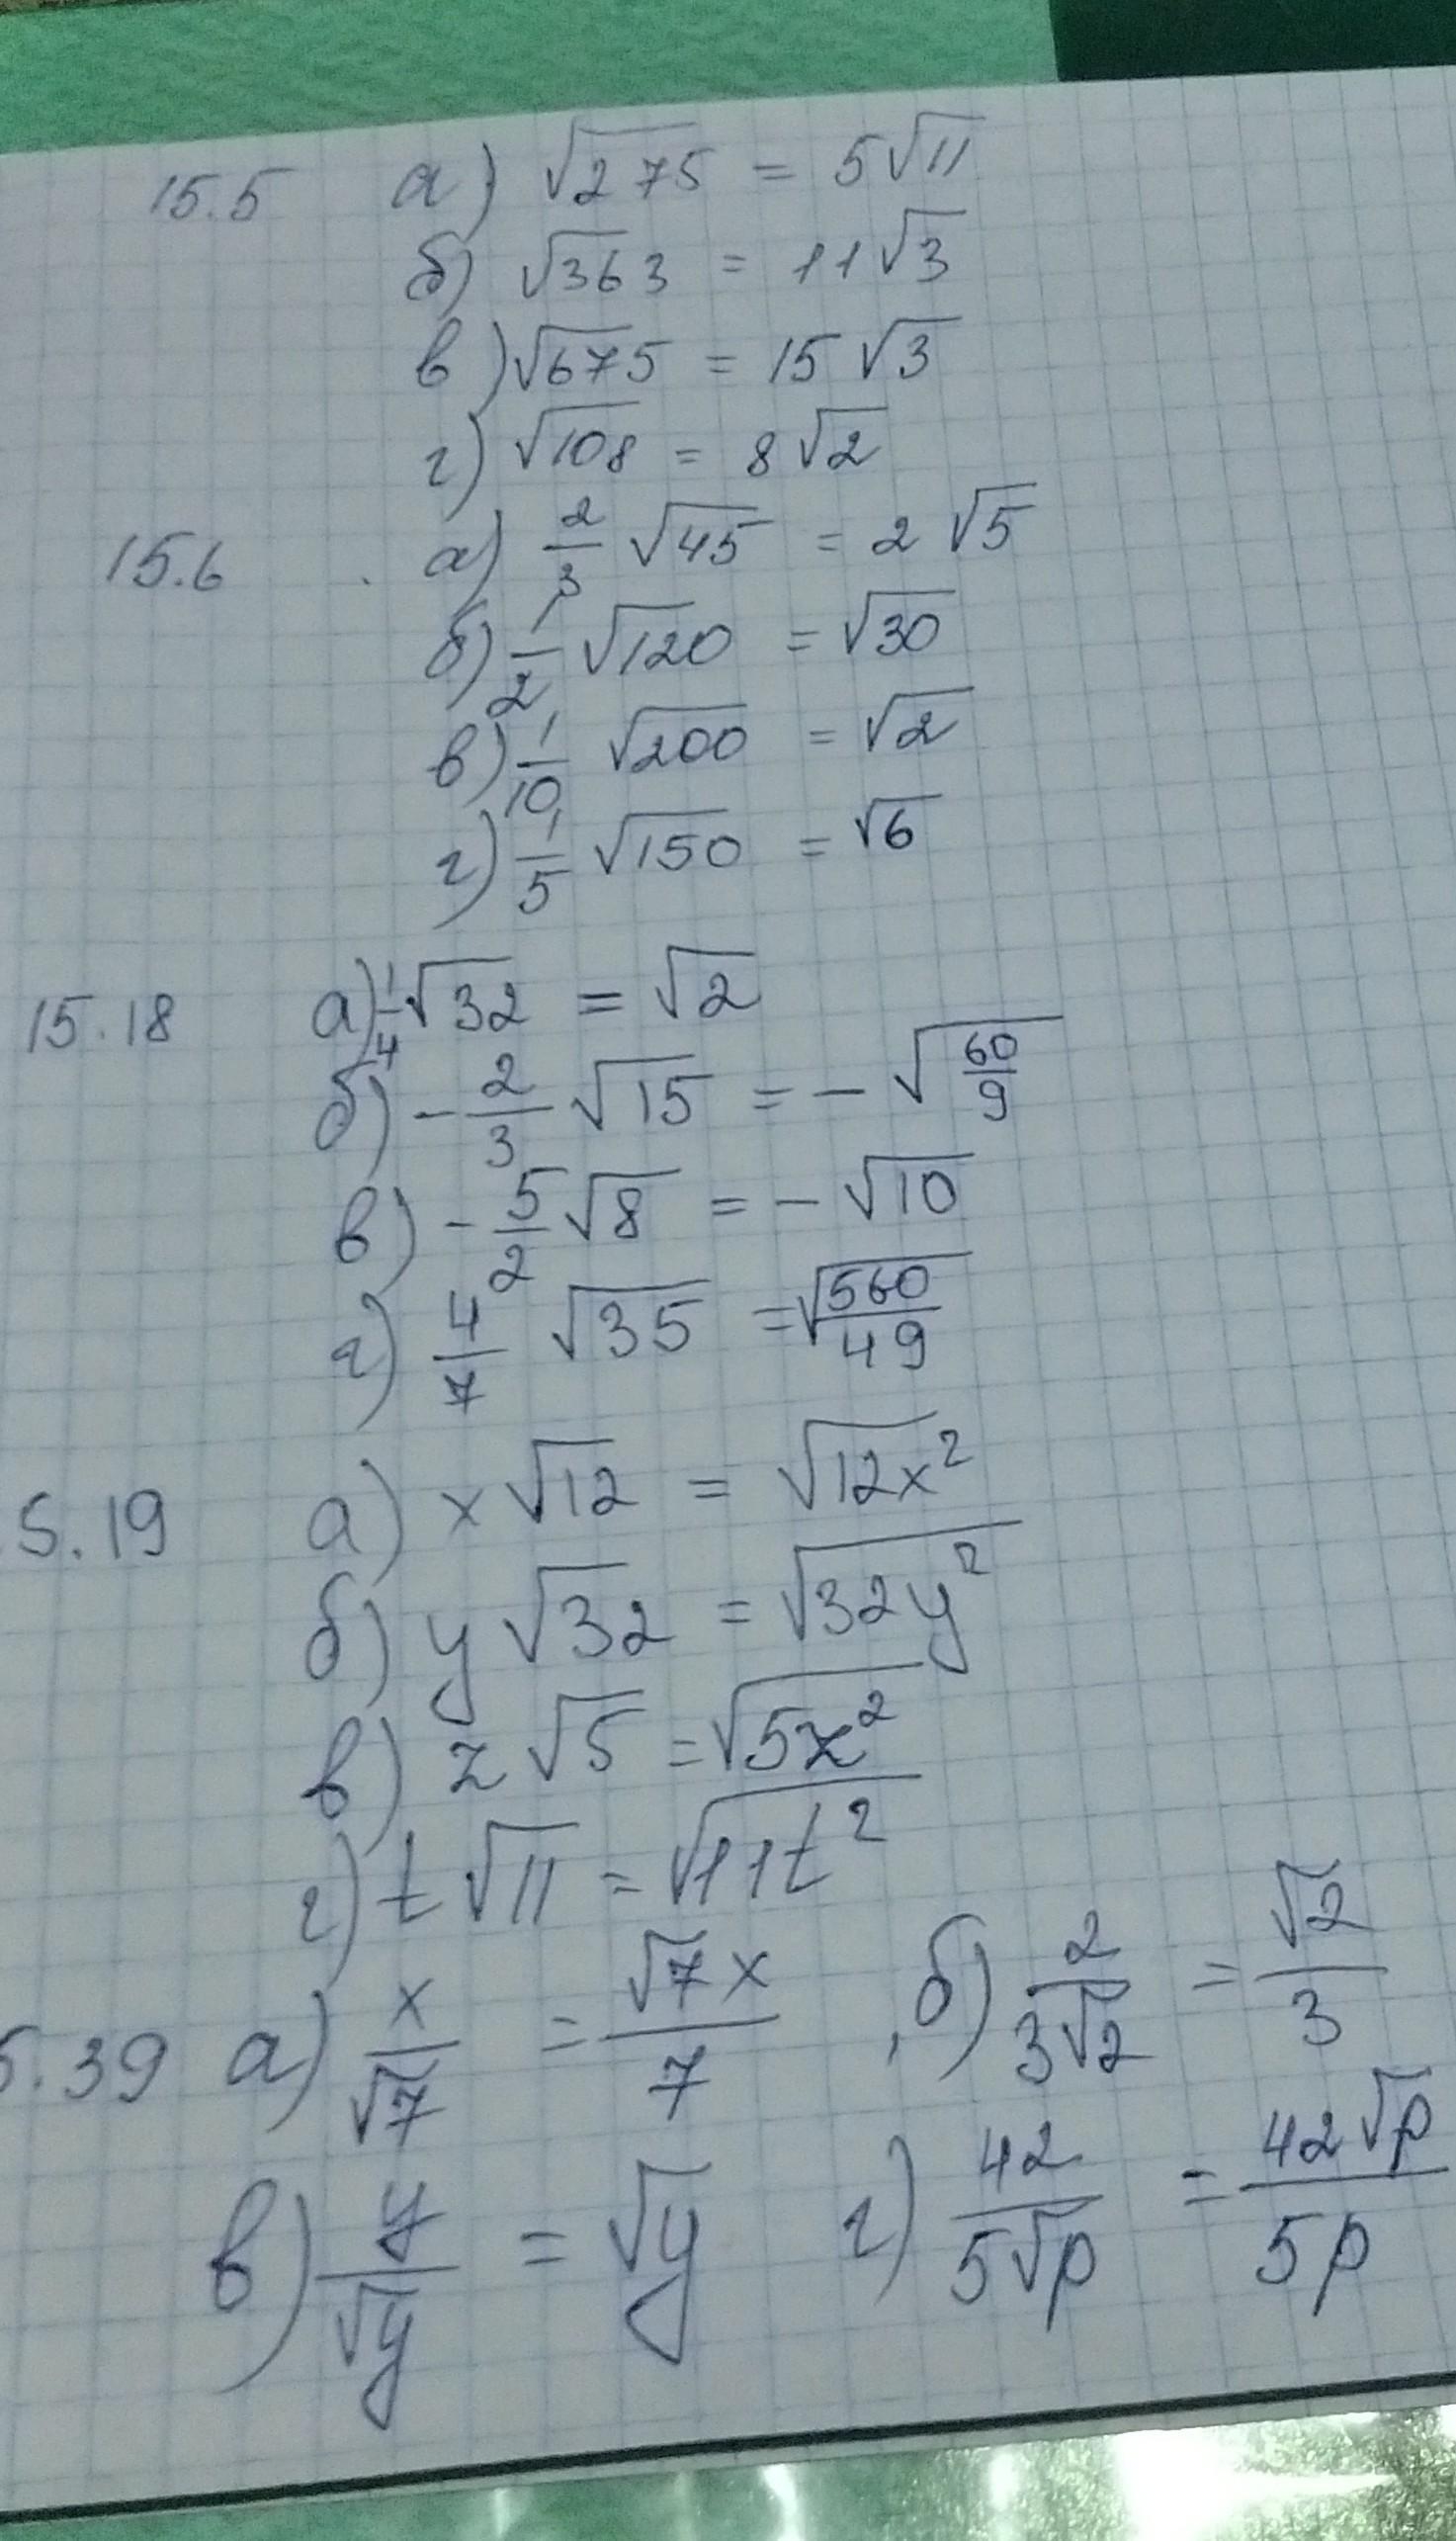 15.5 а) √275 = 5√11
б) √363 = 11√3
в) √675 = 15√3
г) √108 = 8√2
15.6 а) 2/3 √45 = 2√5
б) 1/2 √120 = √30
в) 1/10 √200 = √2
г) 1/5 √150 = √6
15.18 а) 1/4 √32 = √2
б) - 2/3 √15 = - √(60/9)
в) - 5/2 √8 = - √10
г) 4/7 √35 = √(560/49)
5.19 а) x√12 = √(12x²)
б) y√32 = √(32y²)
в) z√5 = √(5z²)
г) t√11 = √(11t²)
5.39 а) x/√7 = √7x/7 , б) 2/(3√2) = √2/3
в) y/√y = √y г) 42/(5√p) = 42√p/(5p)